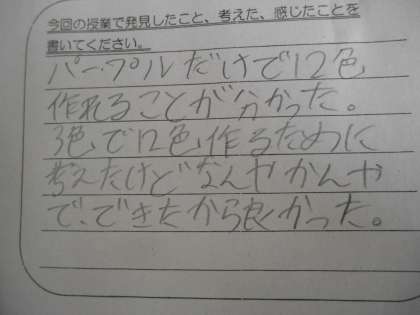 今回の授業で発見したこと、考えた、感じたことを
書いてください。
パープルだけで12色
作れることが分かった。
3色で12色作るために
考えたけどなんやかんや
で、できたから良かった。